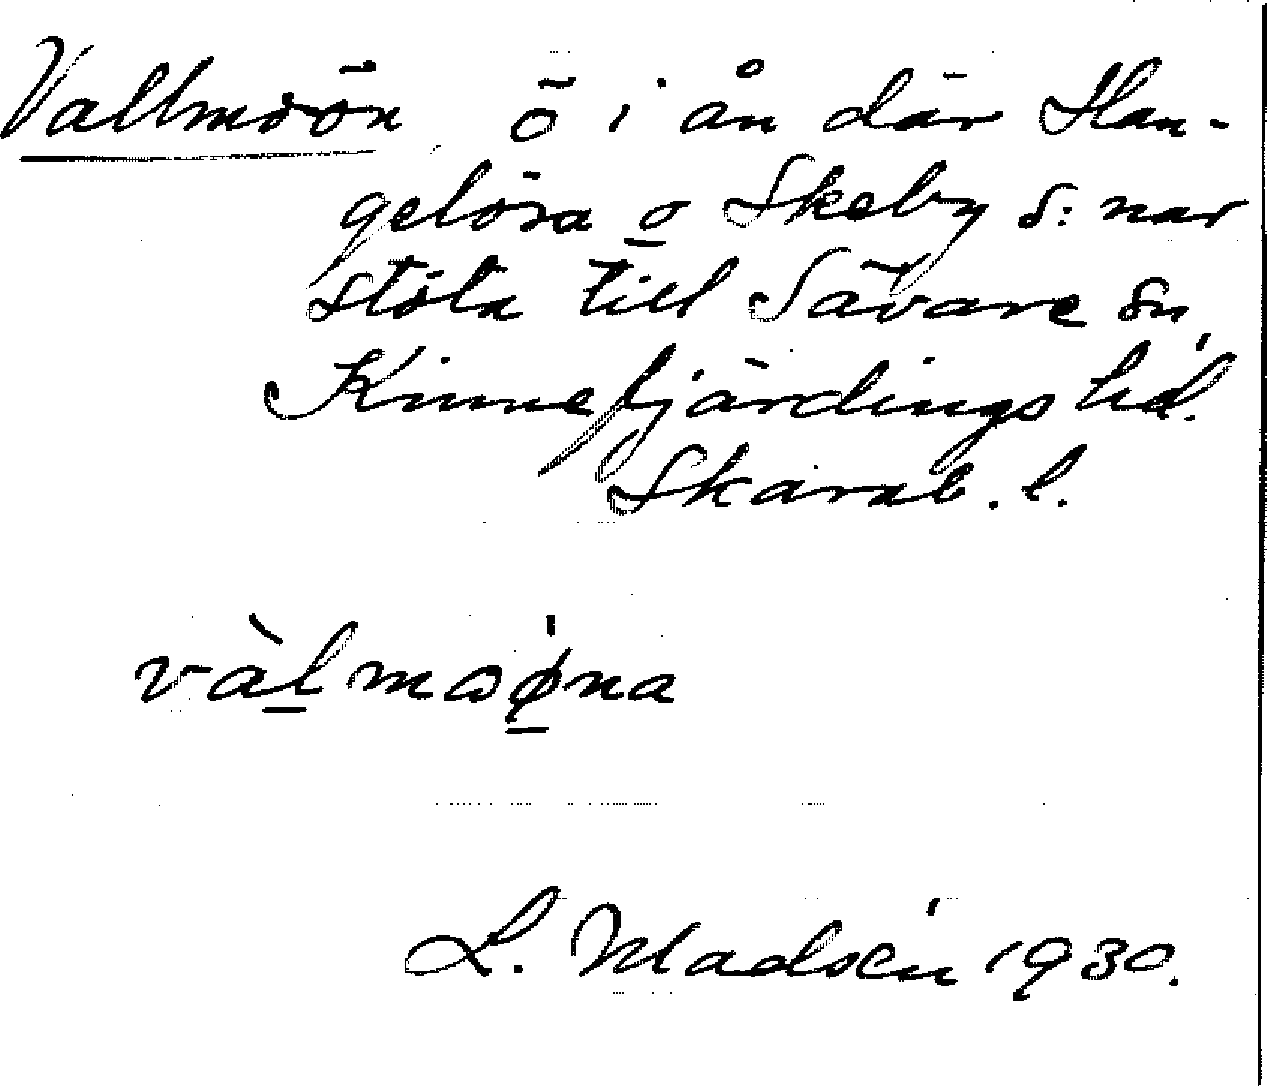 Vallmoön ö i ån där Han-
gelösa o Skeby s:nar
stöta till Sävare sn,
Kinnefjärdings hd.
Skarab. l.
vàlmaǿna
L. Madsén 1930.